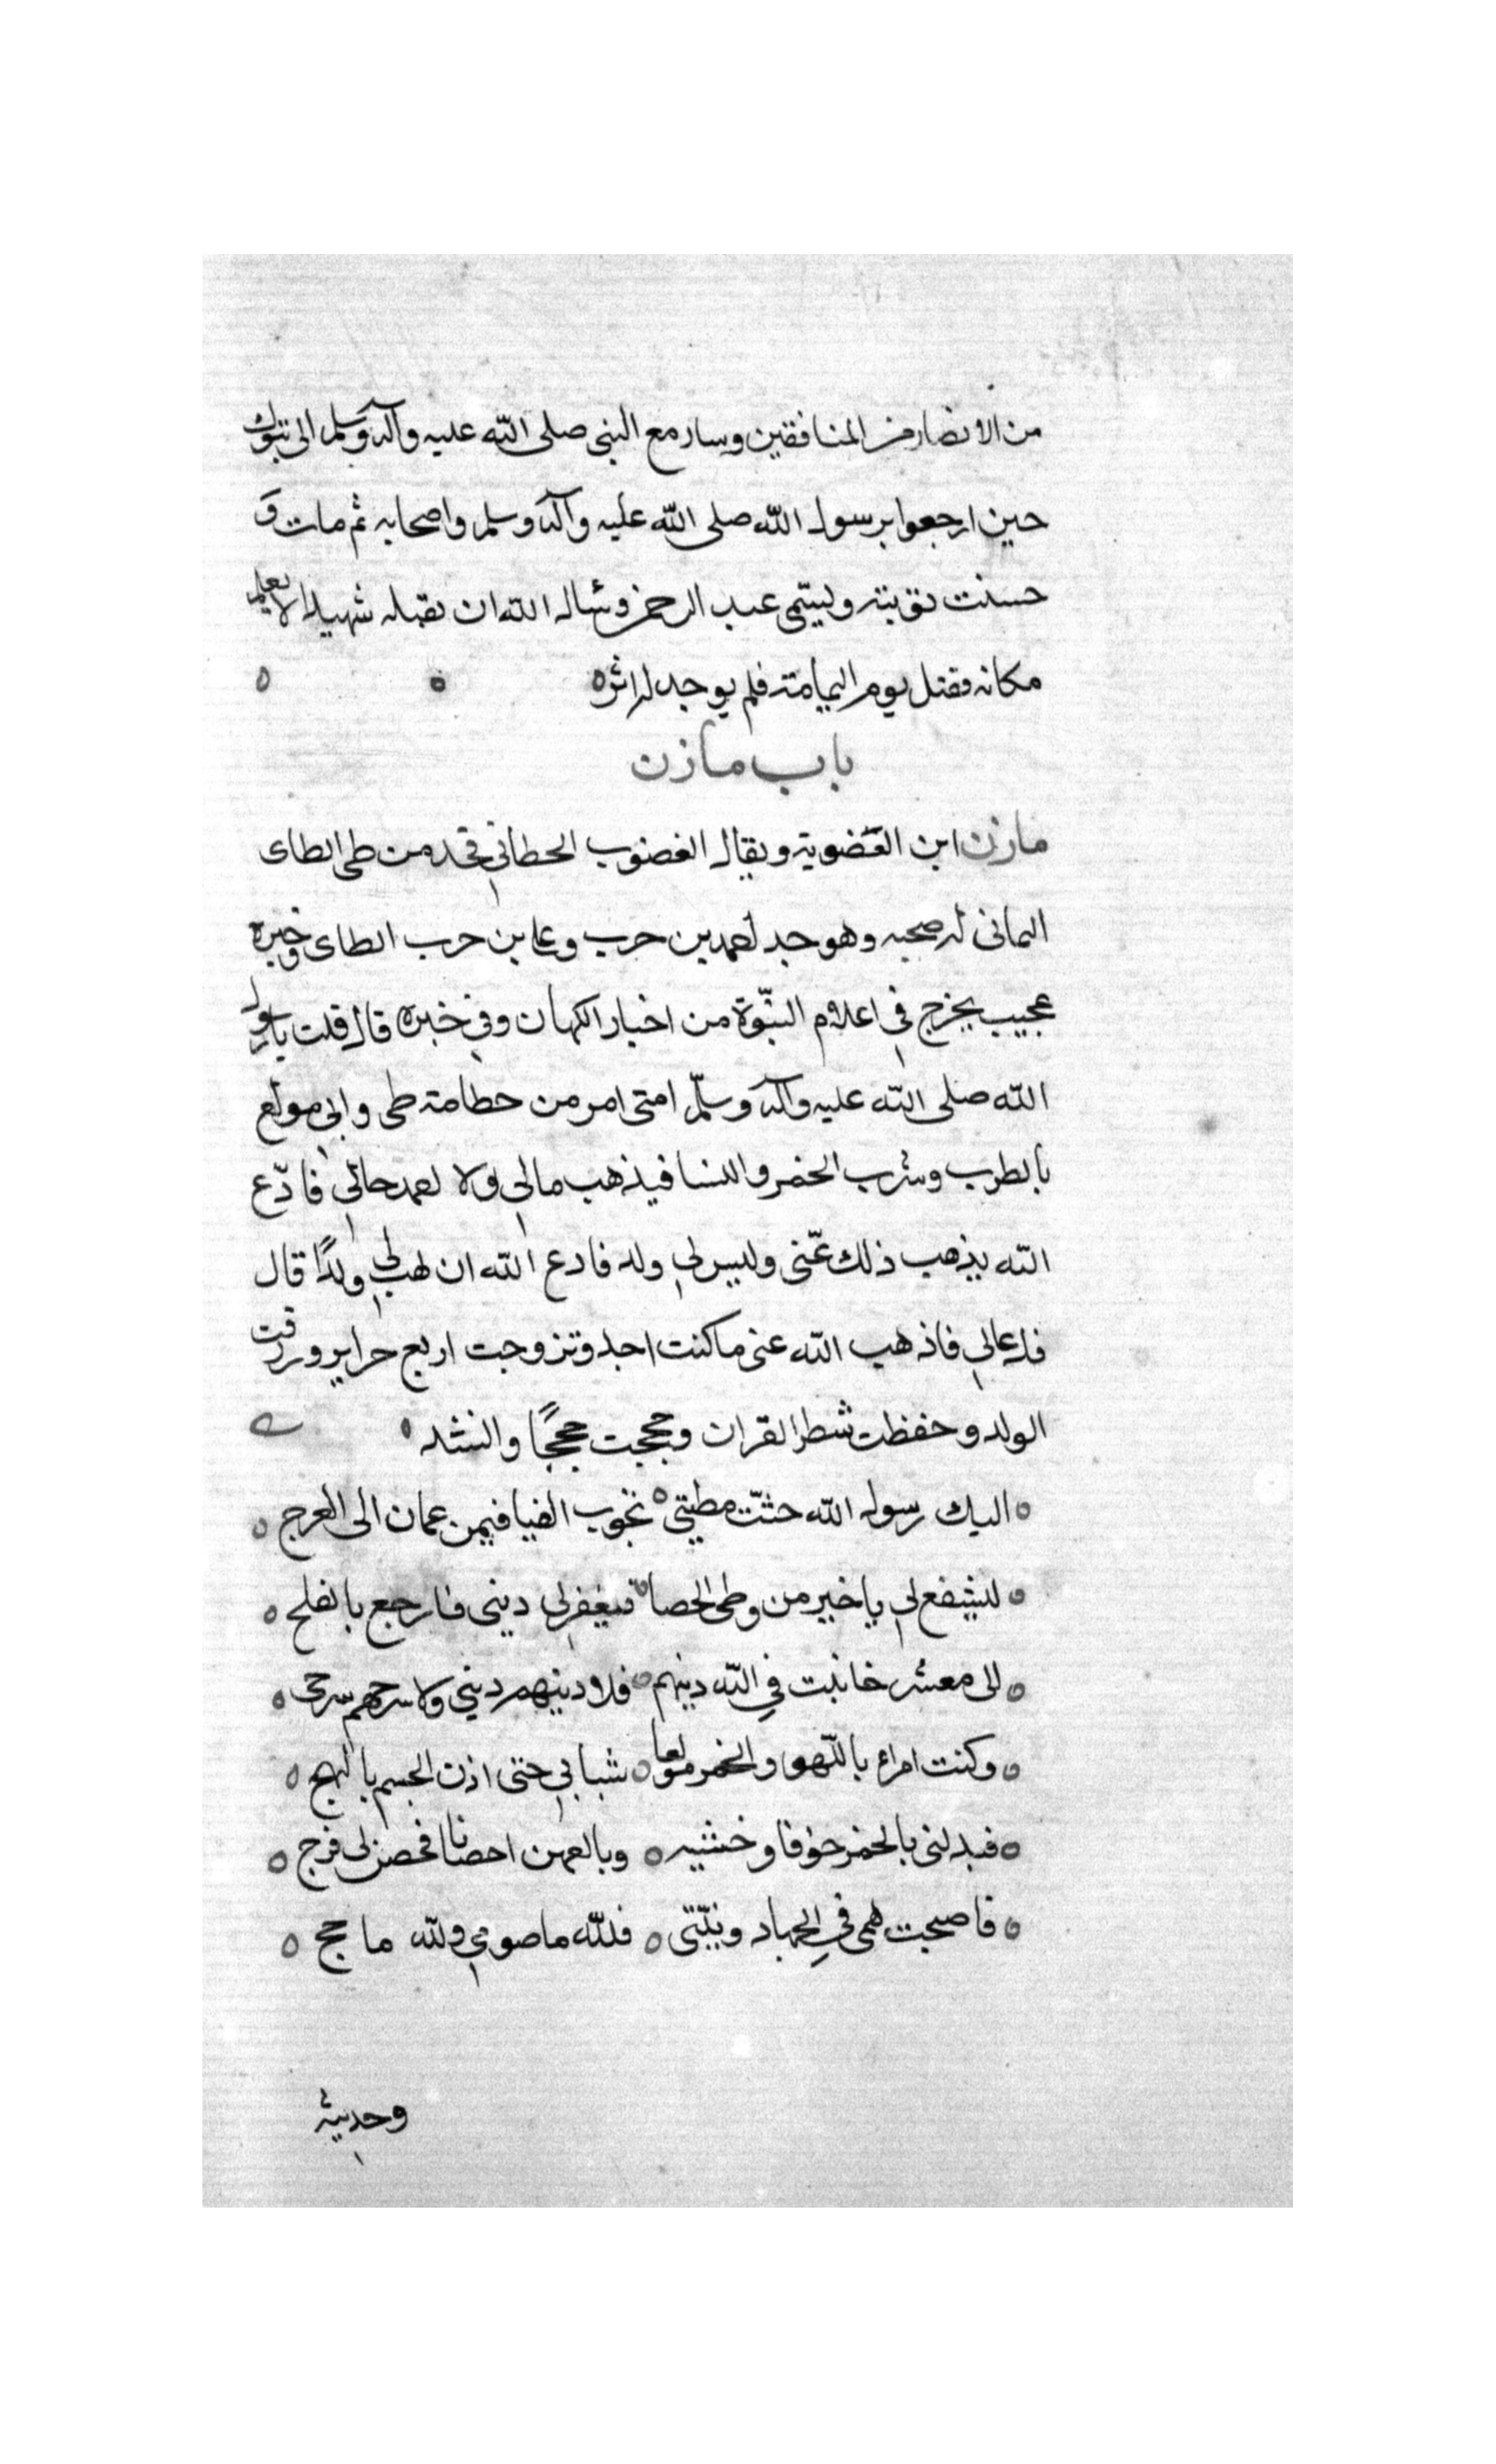 من الانصار من المنافقين وسار مع النبى صلى الله عليه وآله وسلم الى تبوك
حين ارجعوا برسول الله صلى الله عليه وآله وسلم واصحابه ثم مات و
حسنت توبته وليتمى عبد الرحمن وساله الله ان يقبله شهيدا لا يعلم
مكانه فقتل يوم اليمامة فلم يوجد له اثر
باب مازن
مازن ابن الغضوية ويقال الغضوب الحطاني فخد من طى الطاى
اليمانى له صحبه وهو جد لحمد بن حرب وعلى بن حرب الطاى وخبره
عجيب يخرج في اعلام النبّوة من اخبار الكهان وفي خبره قال قلت يا رسول
الله صلى الله عليه وآله وسلّم امتى امر من حطامة طى واني مولع
بالطرب وشرب الخمر والنسا فيذهب مالي ولا لحمد حالي فادّع
الله يذهب ذلك عنّى وليس لي ولد فادع الله ان يهب لي ولدًا قال
فدعا لي فاذهب الله عنى ما كنت اجد وتزوجت اربع حراير ورزقت
الولد وحفظت شطر القران وحججت حججًا وانشد
اليك رسول الله حثّت مطيتي تجوب الفيافي من عمان الى العرج
لتشفع لي يا خير من وطى الحصا فيغفر لي دينى فارجع بالفلح
الى معشر خانبت في الله دينهم فلا دينهم ديني ولا سرحهم سرحى
وكنت امراء باللّهو والخمر مولعا شبابي حتى اذن الجسم بالنهج
فبدلنى بالخمر خوفا وخشيه وبالعهن احصانا فحصن لى فرج
فاصبحت همى في الجهاد ونيّتى فلله ما صومي ولله ما حج
وحديثه